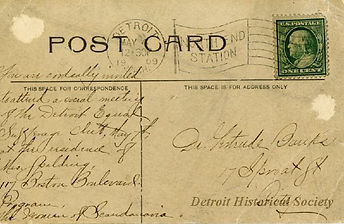 DETROIT
MAY
12-30
1909
STATION
U.S. POSTAGE
ONE CENT
POST CARD
THIS SPACE FOR CORRESPONDENCE
THIS SPACE IS FOR ADDRESS ONLY
You are cordially invited
to attend a social meeting
of the Detroit Equal
Suffrage Club, May
at the residence of
Mrs. Spalding,
117 Boston Boulevard
Program,
The Women of Scandinavia.
Dr. Gertrude Banks
17 Sproat St
City
Detroit Historical Society